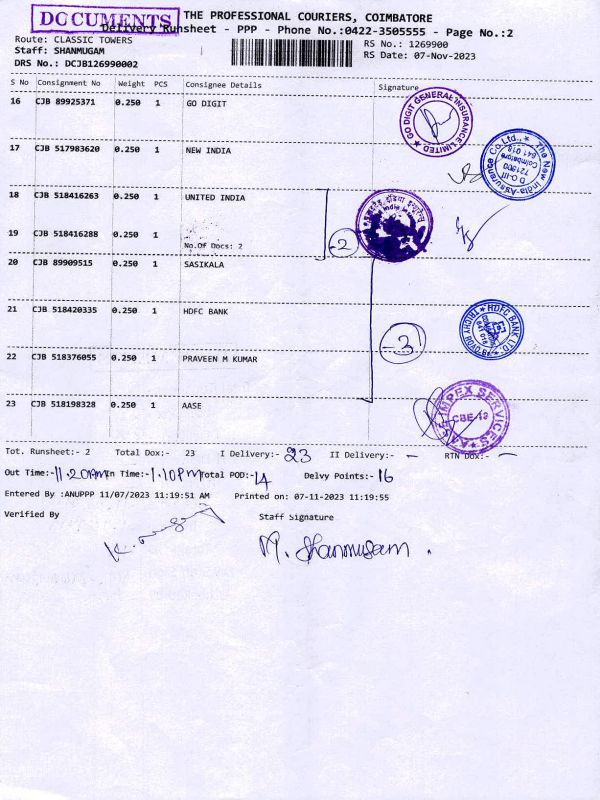 DOCUMENTS
THE PROFESSIONAL COURIERS, COIMBATORE
Delivery Runsheet - PPP - Phone No.:0422-3505555 - Page No.:2
Route: CLASSIC TOWERS RS No.: 1269900
Staff: SHANMUGAM RS Date: 07-Nov-2023
DRS No.: DCJB126990002
S No Consignment No Weight PCS Consignee Details Signature
16 CJB 89925371 0.250 1 GO DIGIT
GO DIGIT GENERAL INSURANCE LIMITED
17 CJB 517983620 0.250 1 NEW INDIA
The New India Assurance Co.Ltd.,
D.O.-III
721800
Coimbatore
641 018
18 CJB 518416263 0.250 1 UNITED INDIA
19 CJB 518416288 0.250 1
No.Of Docs: 2
-2
20 CJB 89909515 0.250 1 SASIKALA
21 CJB 518420335 0.250 1 HDFC BANK
HDFC BANK LTD
-3
22 CJB 518376055 0.250 1 PRAVEEN M KUMAR
23 CJB 518198328 0.250 1 AASE
IMPEX SERVICES
CBE-18
Tot. Runsheet:- 2 Total Dox:- 23 I Delivery:- 23 II Delivery:- - RTN Dox:- -
Out Time:- 11.20AM In Time:- 1.10PM Total POD:- 14 Delvy Points:- 16
Entered By :ANUPPP 11/07/2023 11:19:51 AM Printed on: 07-11-2023 11:19:55
Verified By Staff Signature
M. Shanmugam.